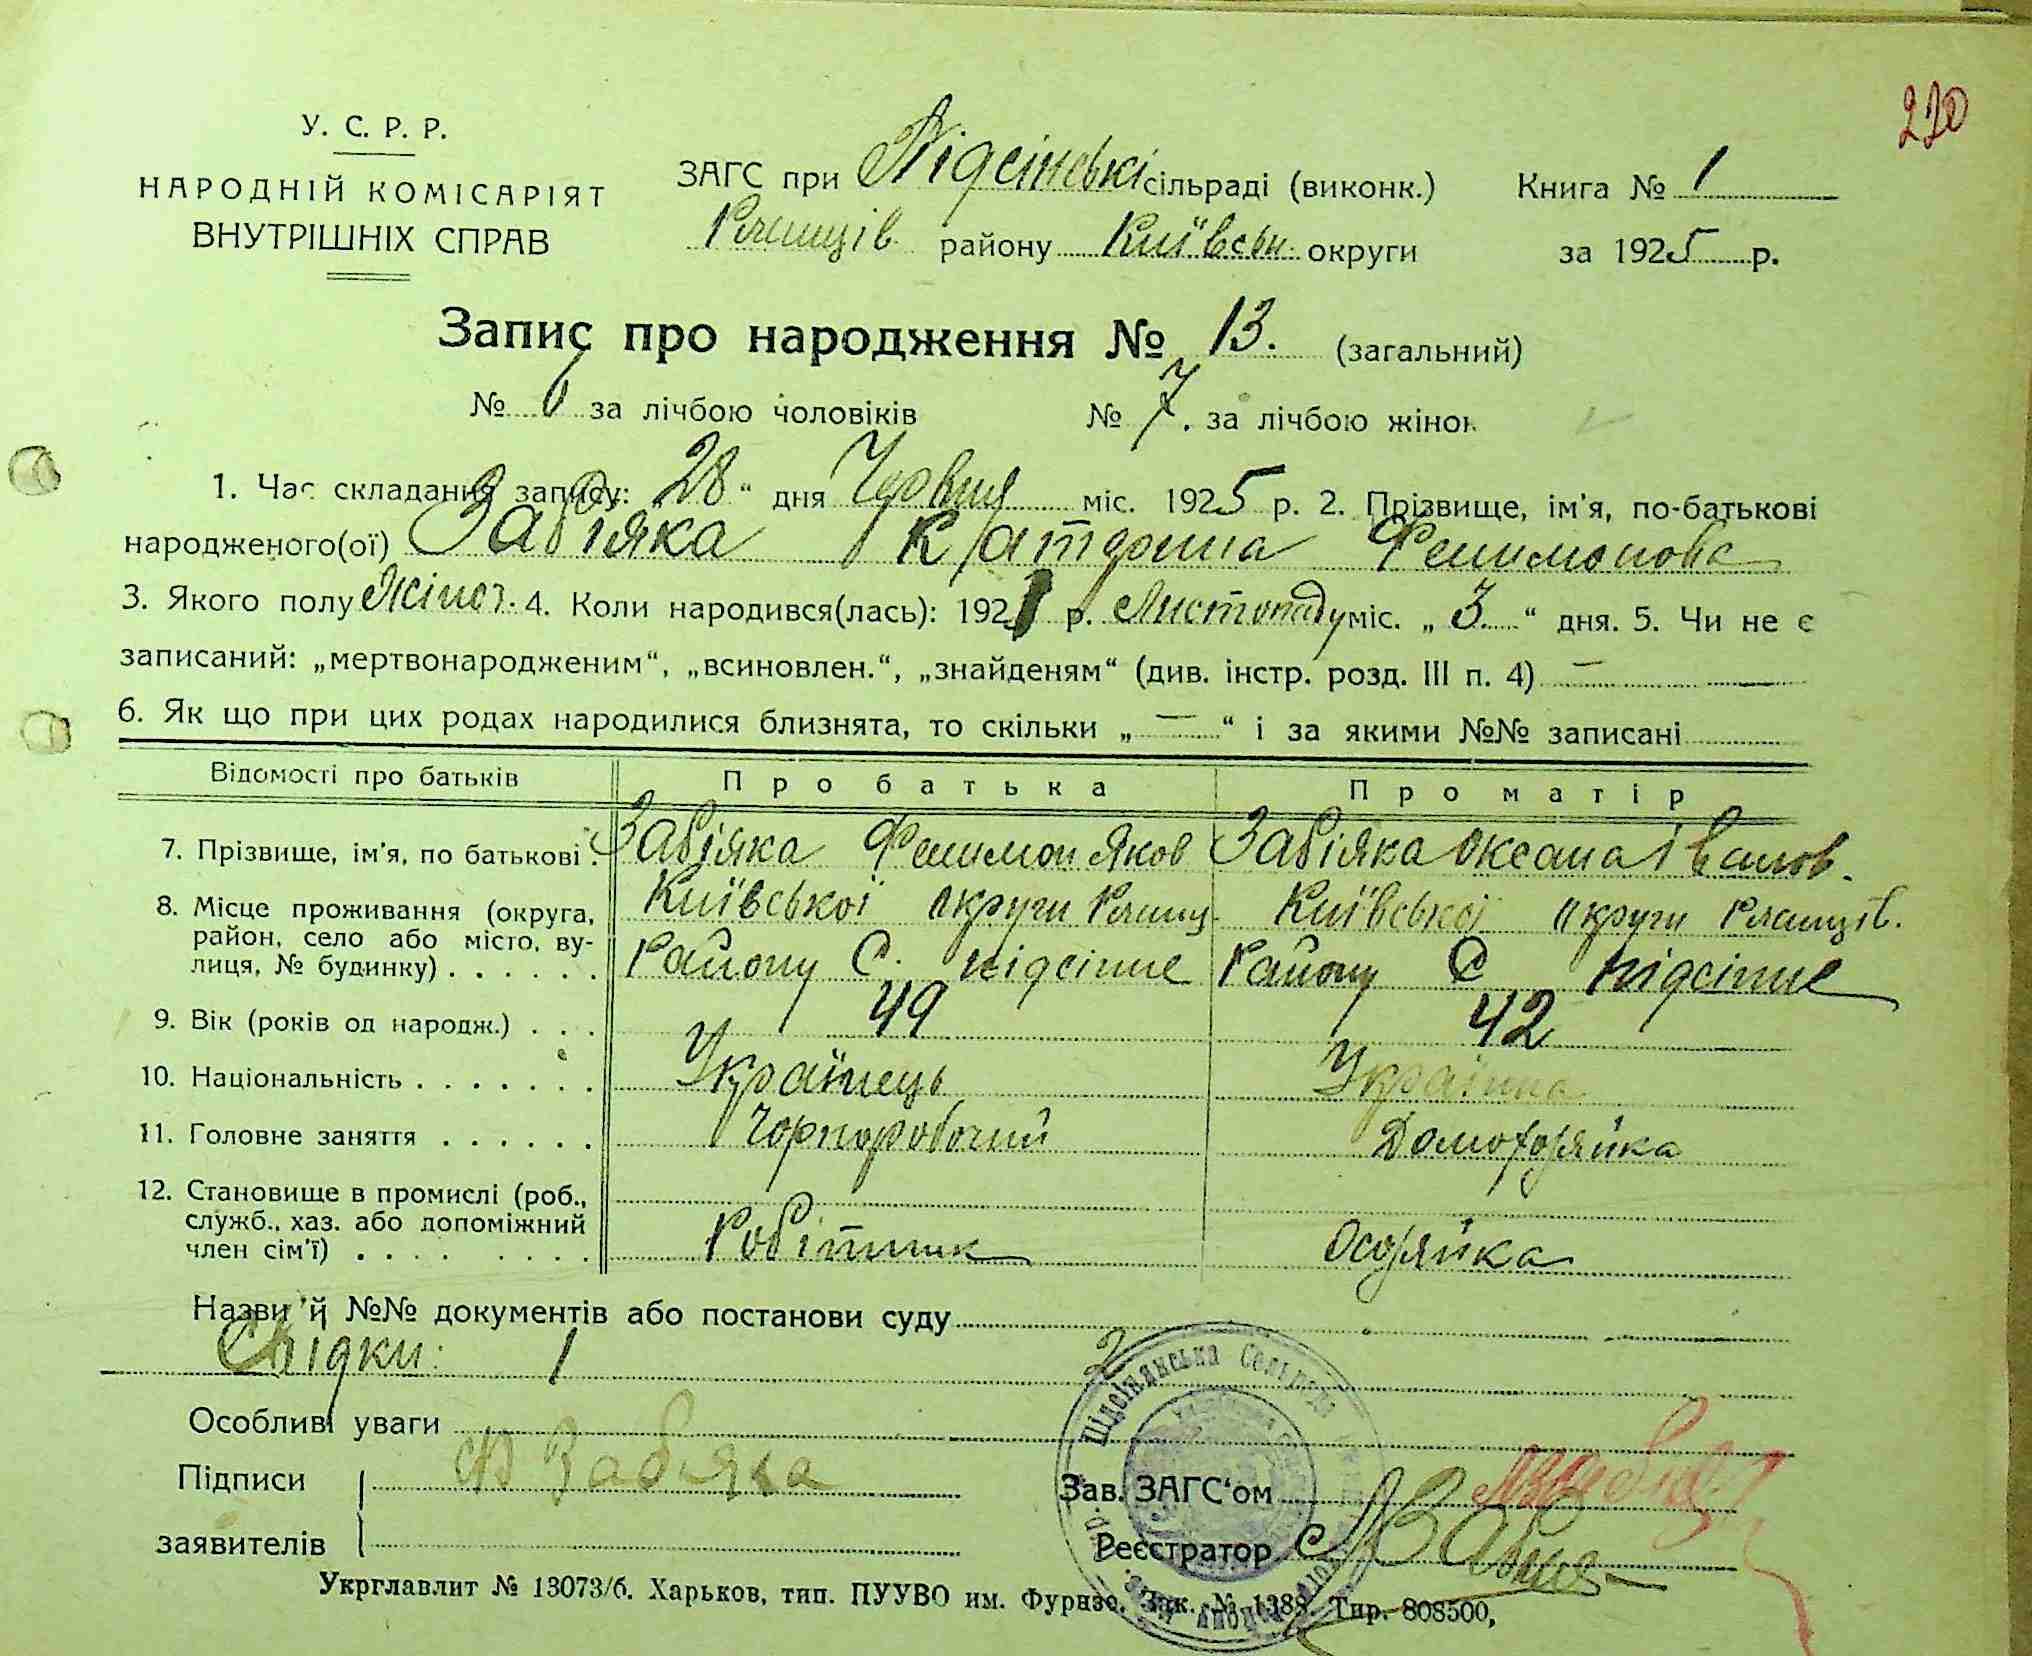 220
У. С. Р. Р.
НАРОДНІЙ КОМІСАРІЯТ
ВНУТРІШНІХ СПРАВ
ЗАГС при Підсінські сільраді (виконк.) Книга № 1
Ржищів району Київськ. округи за 1925 р.
Запис про народження № 13. (загальний)
№ 6 за лічбою чоловіків № 7. за лічбою жінок
1. Час складання запису: 28 " дня Червня міс. 1925 р. 2. Прізвище, ім'я, по-батькові
народженого(ої) Забіяка Филимонова
3. Якого полу Жіноч. 4. Коли народився(лась): 1921 р. Листопаду міс. „ 3 “ дня. 5. Чи не є
записаний: „мертвонародженим“, „всиновлен.“, „знайденям“ (див. інстр. розд. III п. 4) —
6. Як що при цих родах народилися близнята, то скільки „ — “ і за якими №№ записані
Відомості про батьків Про батька Про матір
7. Прізвище, ім'я, по батькові . Забіяка Филимон Яков Забіяка Оксана Іванов.
8. Місце проживання (округа, район, село або місто, вулиця, № будинку) . . . . . . Київської округи Ржищ. Київської округи Ржищів.
Району С. Підсінне Району С Підсінне
9. Вік (років од народж.) . . . 49 42
10. Національність . . . . . . . Українець Українка
11. Головне заняття . . . . . . Чорноробочий
12. Становище в промислі (роб.,
служб., хаз. або допоміжний
член сім'ї) . . . . . . . . . Робітник
Назви й №№ документів або постанови суду
Свідки: 1 2
Особливі уваги
Підписи Ф Забіяка Зав. ЗАГС'ом
заявителів Реєстратор
Укрглавлит № 13073/б. Харьков, тип. ПУУВО им. Фрунзе. Зак. № 1388. Тир. 808500,
Підсінянська Сельрада